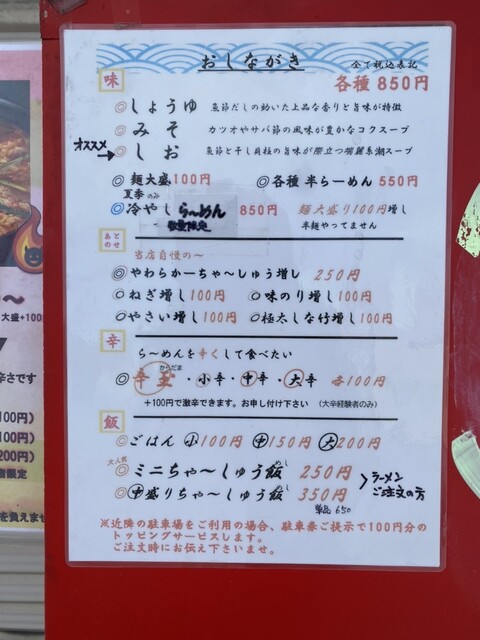 おしながき
全て税込表記
味
各種 850円
◎しょうゆ 魚節だしの効いた上品な香りと旨味が特徴
◎みそ カツオやサバ節の風味が豊かなコクスープ
オススメ
◎しお 魚節と干し貝柱の旨味が際立つ瑠璃系潮スープ
◎麺大盛100円 ◎各種 半らーめん 550円
夏季のみ
◎冷やしらーめん 850円 麺大盛り100円増し
数量限定 半麺やってません
あとのせ
当店自慢の〜
◎やわらかーちゃ〜しゅう増し 250円
◎ねぎ増し100円 ◎味のり増し100円
◎やさい増し100円 ◎極太しな竹増し100円
辛
ら〜めんを辛くして食べたい
からだま
◎辛玉・小辛・中辛・大辛 各100円
+100円で激辛できます。お申し付け下さい (大辛経験者のみ)
飯
◎ごはん 小100円 中150円 大200円
大人気
◎ミニちゃ〜しゅう飯 250円
めし
◎中盛りちゃ〜しゅう飯 350円
めし
ラーメンご注文の方
単品 650
※近隣の駐車場をご利用の場合、駐車券ご提示で100円分の
トッピングサービスします。
ご注文時にお伝え下さいませ。
〜
大盛+100
辛さです
100円)
100円)
200円)
者限定
を負えませ